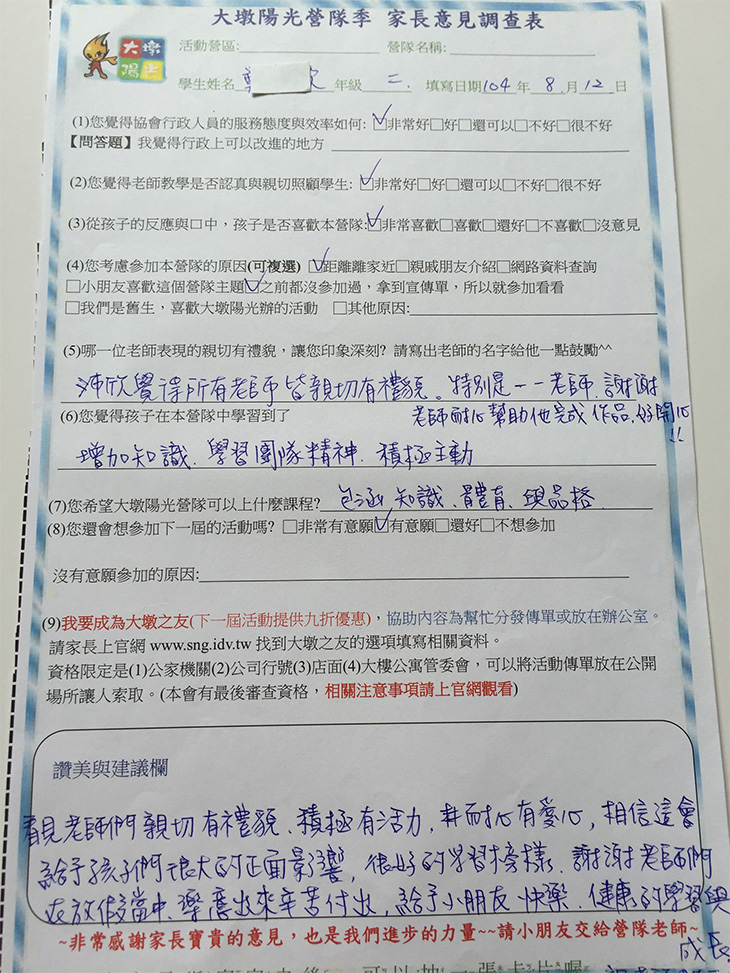 大墩陽光營隊季 家長意見調查表
大墩
陽光
活動營區: 營隊名稱:
學生姓名 年級 二 填寫日期104年 8 月 12 日
(1)您覺得協會行政人員的服務態度與效率如何: ☑非常好□好□還可以□不好□很不好
【問答題】我覺得行政上可以改進的地方
(2)您覺得老師教學是否認真與親切照顧學生: ☑非常好□好□還可以□不好□很不好
(3)從孩子的反應與口中，孩子是否喜歡本營隊:☑非常喜歡□喜歡□還好□不喜歡□沒意見
(4)您考慮參加本營隊的原因(可複選) ☑距離離家近□親戚朋友介紹□網路資料查詢
□小朋友喜歡這個營隊主題☑之前都沒參加過，拿到宣傳單，所以就參加看看
□我們是舊生，喜歡大墩陽光辦的活動 □其他原因:
(5)哪一位老師表現的親切有禮貌，讓您印象深刻? 請寫出老師的名字給他一點鼓勵^^
沛欣覺得所有老師皆親切有禮貌。特別是一一老師、謝謝
老師耐心幫助他完成作品,好開心!!
(6)您覺得孩子在本營隊中學習到了
增加知識、學習團隊精神、積極主動
(7)您希望大墩陽光營隊可以上什麼課程? 包涵知識、體育、與品格.
(8)您還會想參加下一屆的活動嗎? □非常有意願☑有意願□還好□不想參加
沒有意願參加的原因:
(9)我要成為大墩之友(下一屆活動提供九折優惠)，協助內容為幫忙分發傳單或放在辦公室。
請家長上官網 www.sng.idv.tw 找到大墩之友的選項填寫相關資料。
資格限定是(1)公家機關(2)公司行號(3)店面(4)大樓公寓管委會，可以將活動傳單放在公開
場所讓人索取。(本會有最後審查資格，相關注意事項請上官網觀看)
讚美與建議欄
看見老師們親切有禮貌、積極有活力、耐心有愛心, 相信這會
給予孩子們很大的正面影響, 很好的學習榜樣、謝謝老師們
在放假當中、樂意出來辛苦付出, 給予小朋友快樂、健康的學習與
成長
~非常感謝家長寶貴的意見，也是我們進步的力量~~請小朋友交給營隊老師~